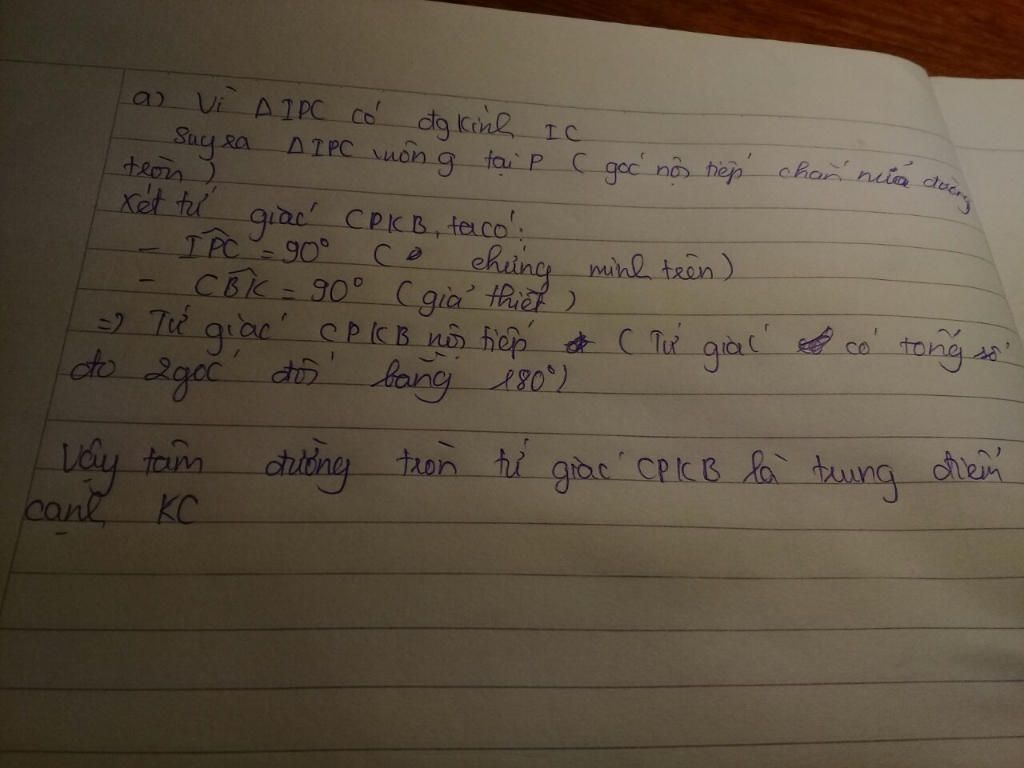 a) Vì ΔIPC có đg kính IC
Suy ra ΔIPC vuông tại P ( góc nội tiếp chắn nửa đường
tròn )
Xét tứ giác CPKB, ta có:
- IPC = 90° ( chứng minh trên )
- CBK = 90° (giả thiết )
=> Tứ giác CPKB nội tiếp ( Tứ giác có tổng số
đo 2 góc đối bằng 180°)
Vậy tâm đường tròn tứ giác CPKB là trung điểm
cạnh KC